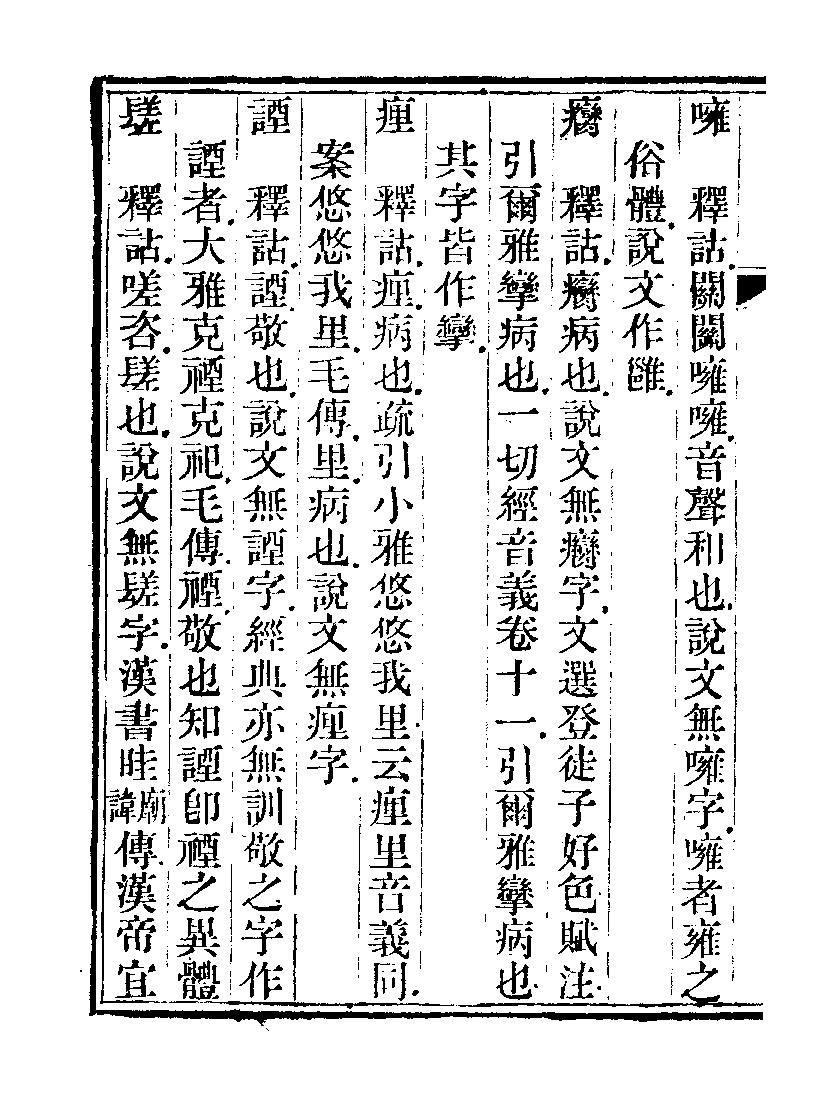 噰　釋詁關關噰噰音聲和也說文無噰字噰者雍之
俗體說文作雝
癵　釋詁癵病也說文無癵字文選登徒子好色賦注
引爾雅攣病也一切經音義卷十一引爾雅攣病也
其字皆作攣
㾖　釋詁㾖病也疏引小雅悠悠我里云㾖里音義同
案悠悠我里毛傳里病也說文無㾖字
諲　釋詁諲敬也說文無諲字經典亦無訓敬之字作
諲者大雅克禋克祀毛傳禋敬也知諲卽禋之異體
䠡　釋詁嗟咨䠡也說文無䠡字漢書眭廟諱傳漢帝宜